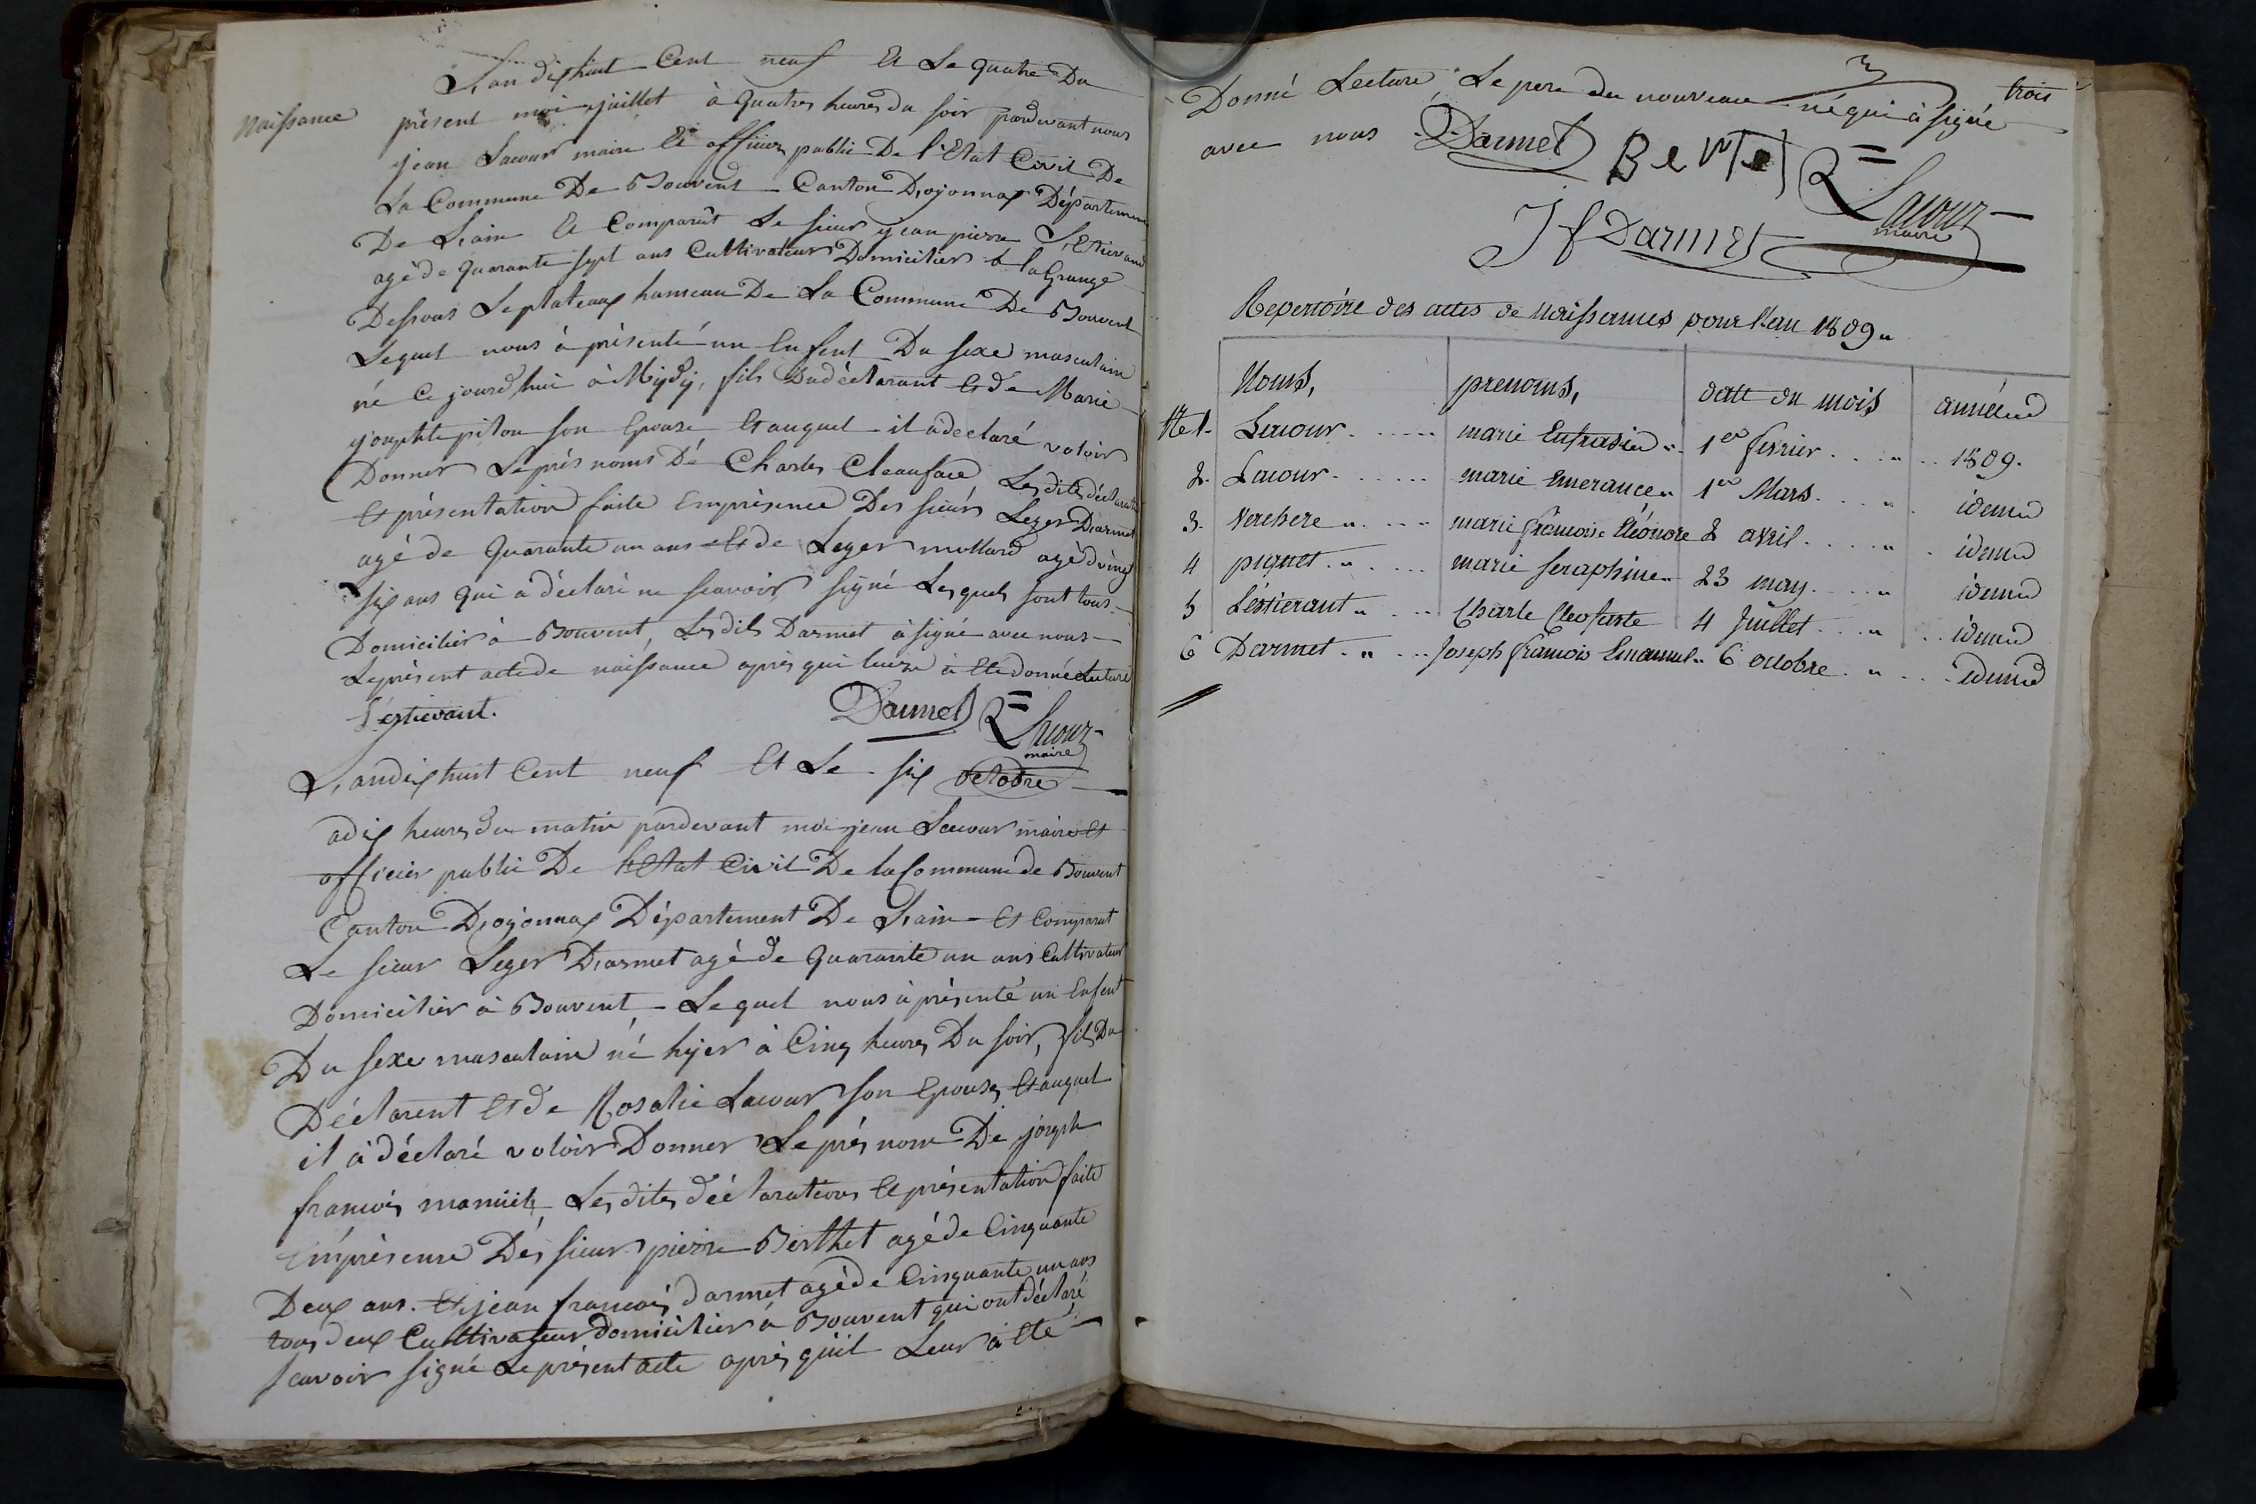 Naissance
L'an dix huit Cent neuf Et Le quatre Du
présent moi juillet à quatres heures du soir pardevant nous
jean Lacour maire Et officier public De l'Etat Civil De
La Commune De Bouvent Canton D'oyonnax Département
De L'ain Et Comparût Le sieur jean pierre L'Estievant
agé de quarante sept ans Cultivateur Domicilier à la Grange
Dessous Le plateaux hameau De La Commune De Bouvent
Lequel nous à présenté un Enfent Du sexe masculain
né Ce jourd'hui à Mijdij, fils Du déclarant Et de Marie
josephte piton son Epouse Et auquel il à déclaré voloir
Donner Le prés noms Dé Charles Cleauface Les dites déclaration
Et présentation faite Emprésence Des sieurs Leger Darmet
agé de quarante un ans Et de Leger mottard agé d'vingt
six ans qui a déclaré ne scavoir signé Les quels sont tous
Domicilier à Bouvent, Les dits Darmet à signé avec nous
Le présent acte de naissance après qui leure à Eté donné Lecture
L'estievant. Darmet Lacour
maire
L'an dix huit Cent neuf Et Le six octobre
a dix heures du matin pardevant moi jean Lacour maire Et
officier public De l'Etat Civil De la Commune de Bouvent
Canton D'oyonnax Département De L'ain Et Comparut
Le sieur Leger Darmet agé de quarante un ans Cultivateur
Domicilier à Bouvent Lequel nous à présenté un Enfent
Du sexe masculain né hyer à Cinq heures Du soir, fils Du
Déclarent Et de Rosalie Lacour son Epouse, Et auquel
il à déclaré voloir Donner Le prés nom De joseph
francois manuel, Les dites déclarations Et présentation faite
Emprésence Des sieur pierre Berthet agé de Cinquante
Deux ans. Et jean francois darmet agé de Cinquante un ans
tous deux Cultivateur domicilier à Bouvent qui ont déclaré
scavoir signé Le présent acte après qu'il Leur à Eté
3 trois
Donné Lecture, Le pere du nouveau né qui à signé
avec nous Darmet Lacour
maire
J f Darmet
Repertoire des actes de Naissances pour l'an 1809
Noms, prenoms, datte du mois année
No 1. Lacour marie Eufrasie 1er fevrier 1809.
2. Lacour marie Emerance 1er Mars idem
3. Verchere marie francoise Eléonore 2 avril idem
4 piquet marie seraphine 23 may idem
5 Lestievant Charle Cleofaste 4 Juillet idem
6 Darmet Joseph francois Emanuel 6 octobre idem